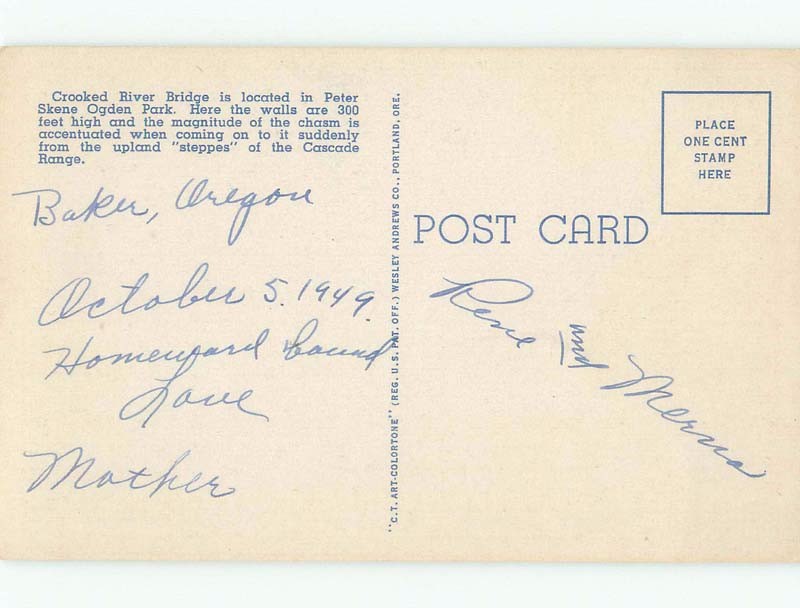 Crooked River Bridge is located in Peter
Skene Ogden Park. Here the walls are 300
feet high and the magnitude of the chasm is
accentuated when coming on to it suddenly
from the upland "steppes" of the Cascade
Range.
Baker, Oregon
October 5. 1949.
Homeward bound
Love
Mother
"C.T. ART-COLORTONE" (REG. U.S. PAT. OFF.) WESLEY ANDREWS CO., PORTLAND, ORE.
PLACE
ONE CENT
STAMP
HERE
POST CARD
Rene and Merna